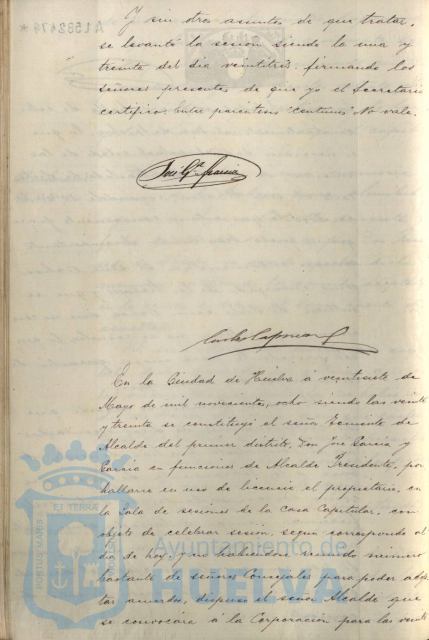 A1582474 *
Y sin otros asuntos de que tratar,
se levantó la sesión siendo la una y
treinta del día veintitres, firmando los
señores presentes de que yo el Secretario
certifico. Entre parentesis "centimos" No vale.
José Gª García
En la Ciudad de Huelva á veintisiete de
Mayo de mil novecientos ocho siendo las veinte
y treinta se constituyó el señor Teniente de
Alcalde del primer distrito, Don José García y
García en funciones de Alcalde Presidente, por
hallarse en uso de licencia el propietario, en
la Sala de sesiones de la Casa Capitular, con
objeto de celebrar sesión, segun corresponde al
día de hoy, y no habiendose reunido número
bastante de señores Concejales para poder adop-
tar acuerdos, dispuso el señor Alcalde que
se convocára á la Corporación para las veinte
PORTUS MARIS ET TERRAE
Ayuntamiento de
HUELVA